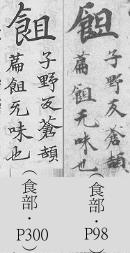 飷
子野反蒼頡
篇飷无味也
（食部·P98）
飷
子野反蒼頡
篇飷无味也
（食部·P300）